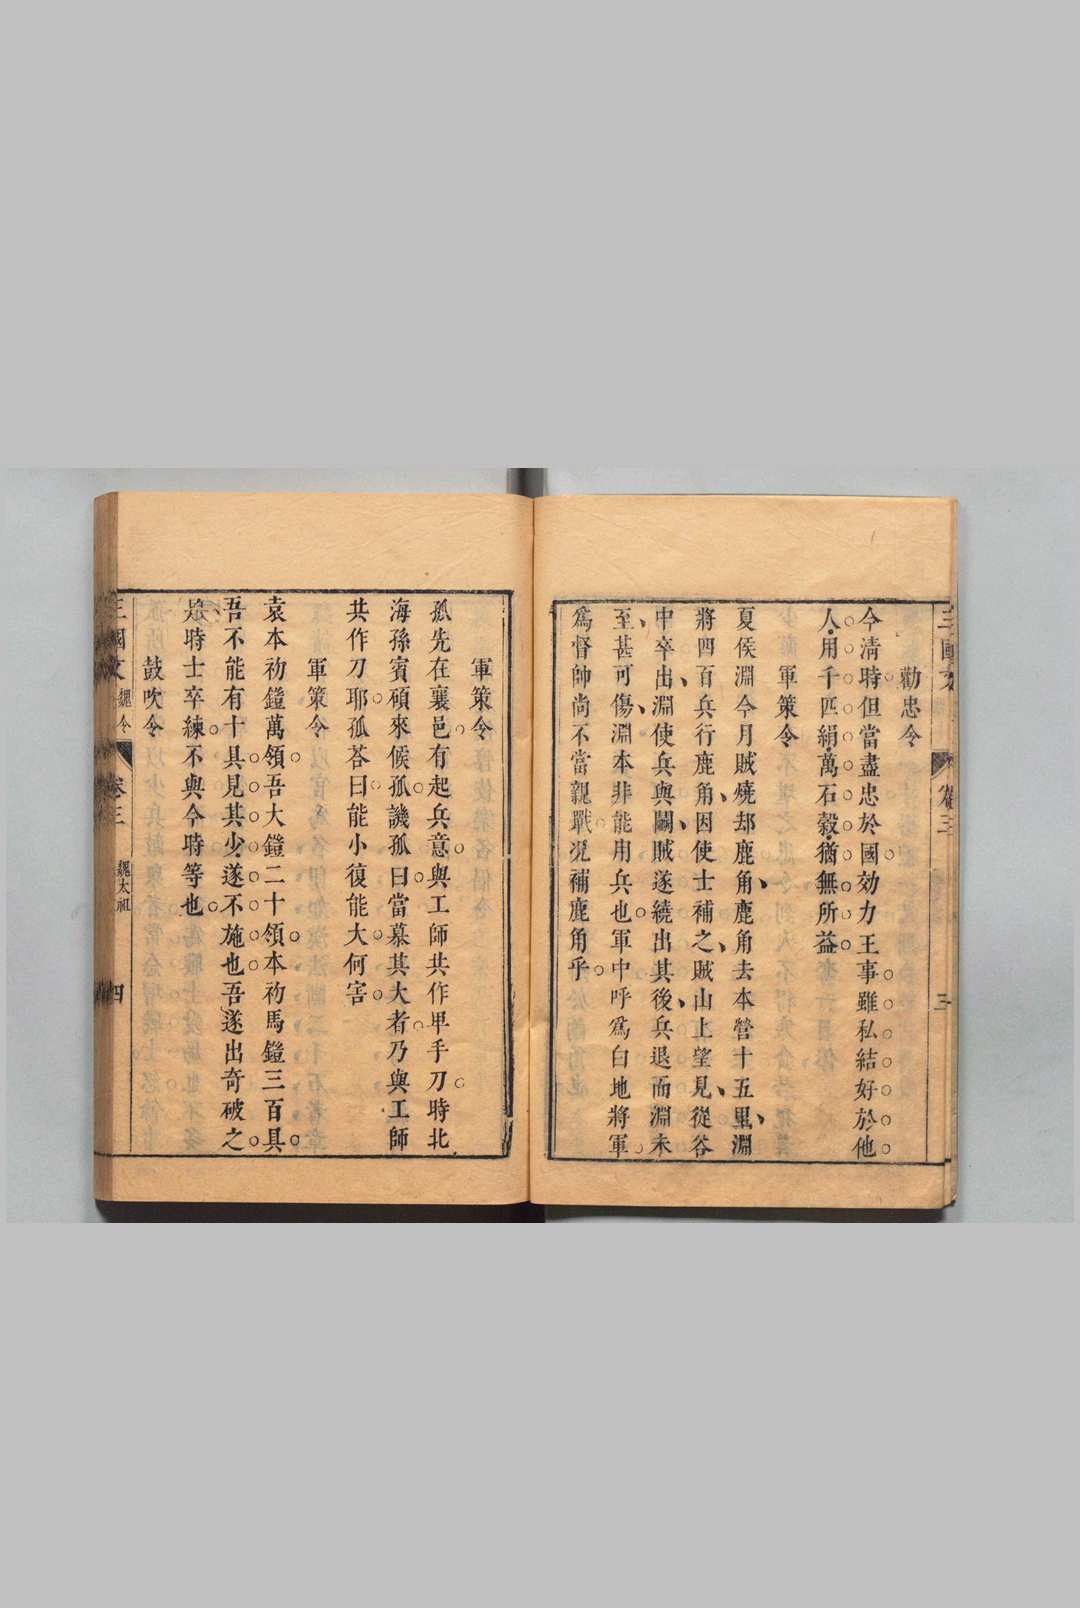 勸忠令
今清時但當盡忠於國効力王事雖私結好於他
人用千匹絹萬石穀猶無所益
軍策令
夏侯淵今月賊燒却鹿角鹿角去本營十五里淵
將四百兵行鹿角因使士補之賊山上望見從谷
中卒出淵使兵與鬭賊遂繞出其後兵退而淵未
至甚可傷淵本非能用兵也軍中呼爲白地將軍
爲督帥尚不當親戰况補鹿角乎
三
軍策令
孤先在襄邑有起兵意與工師共作卑手刀時北
海孫賓碩來候孤譏孤曰當慕其大者乃與工師
共作刀耶孤荅曰能小復能大何害
軍策令
袁本初鎧萬領吾大鎧二十領本初馬鎧三百具
吾不能有十具見其少遂不施也吾遂出奇破之
是時士卒練不與今時等也
鼓吹令
三國文 魏令 卷三 魏太祖 四